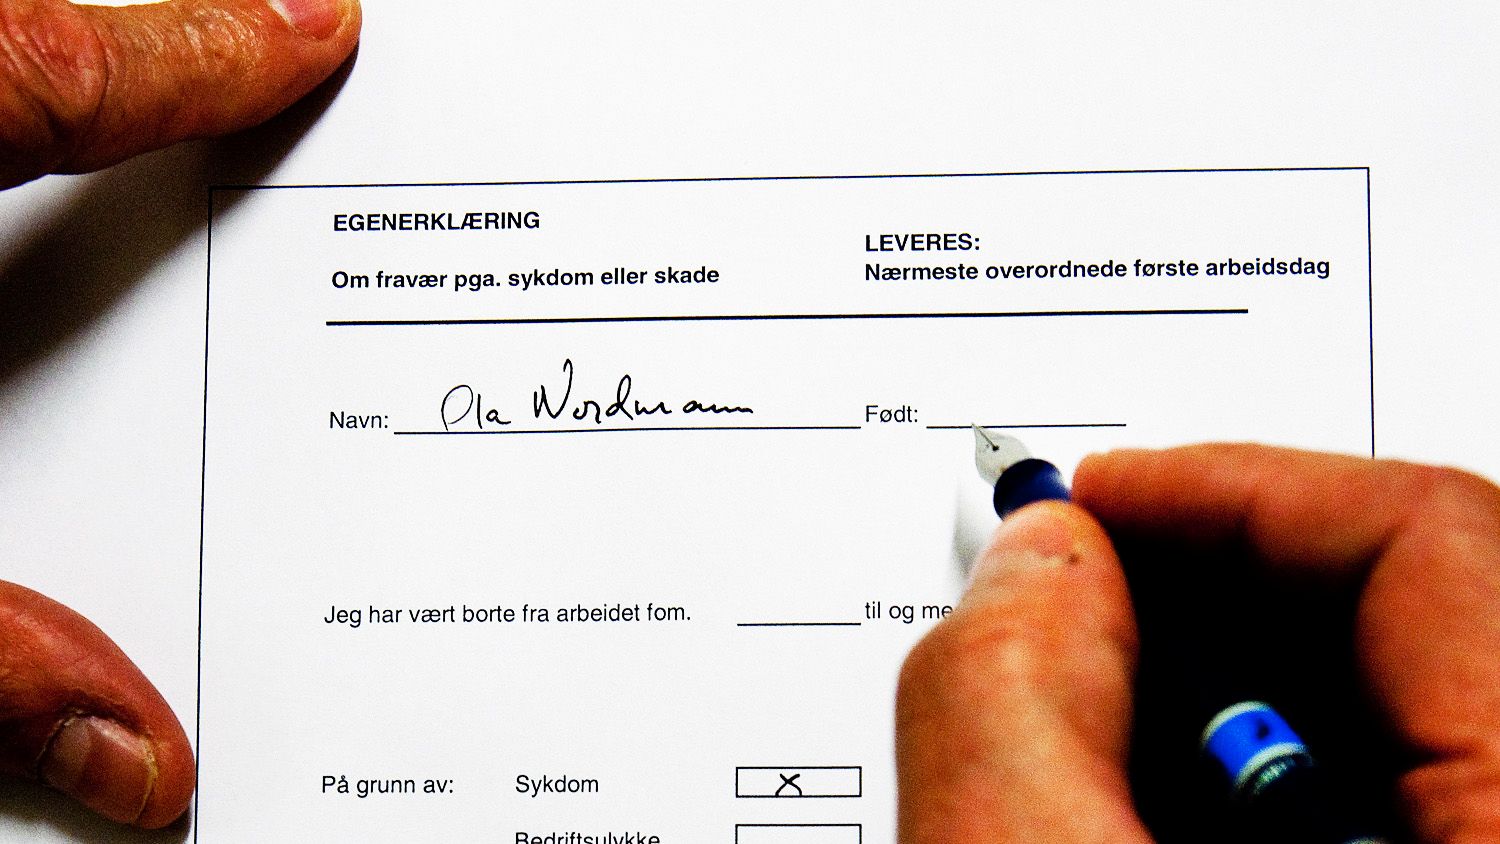 EGENERKLÆRING
Om fravær pga. sykdom eller skade
LEVERES:
Nærmeste overordnede første arbeidsdag
Navn: Ola Nordmann Født:
Jeg har vært borte fra arbeidet fom. til og me
På grunn av: Sykdom x
Bedriftsulykke